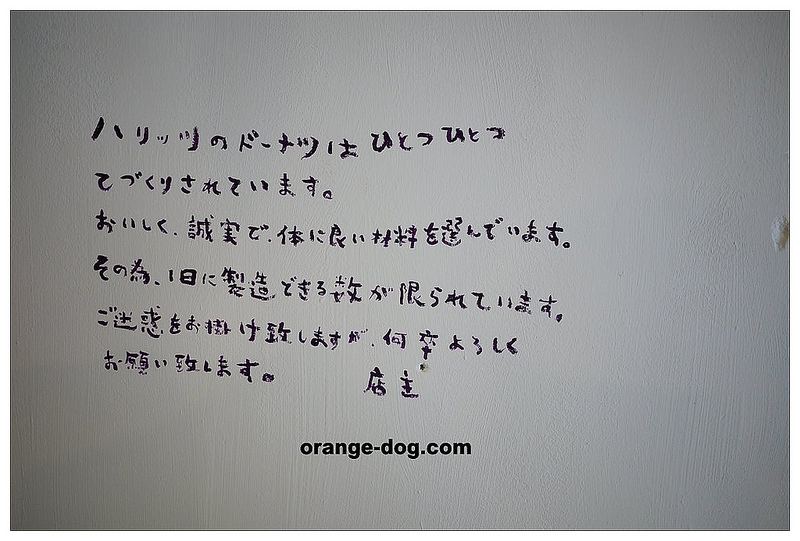 ハリッツのドーナツはひとつひとつ
てづくりされています。
おいしく、誠実で、体に良い材料を選んでいます。
その為、1日に製造できる数が限られています。
ご迷惑をお掛け致しますが、何卒よろしく
お願い致します。 店主
orange-dog.com